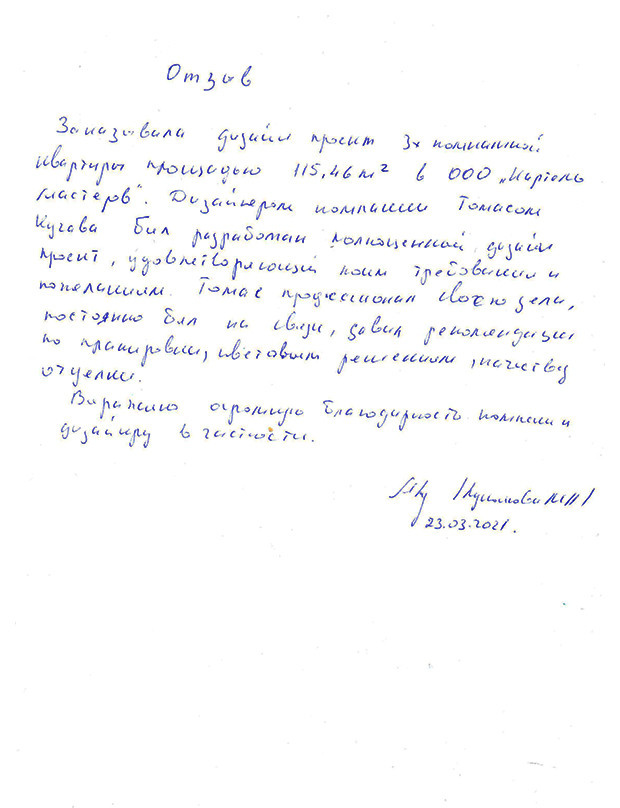 Отзыв
Заказывала дизайн проект 3х комнатной
квартиры площадью 115,46 м² в ООО „Картель
мастеров". Дизайнером компании Томасом
Кучава был разработан полноценной дизайн
проект, удовлетворяющий моим требованиям и
пожеланиям. Томас профессионал своего дела,
постоянно был на связи, давал рекомендации
по планировки, цветовым решениям, качеству
отделки.
Выражаю огромную благодарность компании и
дизайнеру в частности.
23.03.2021.